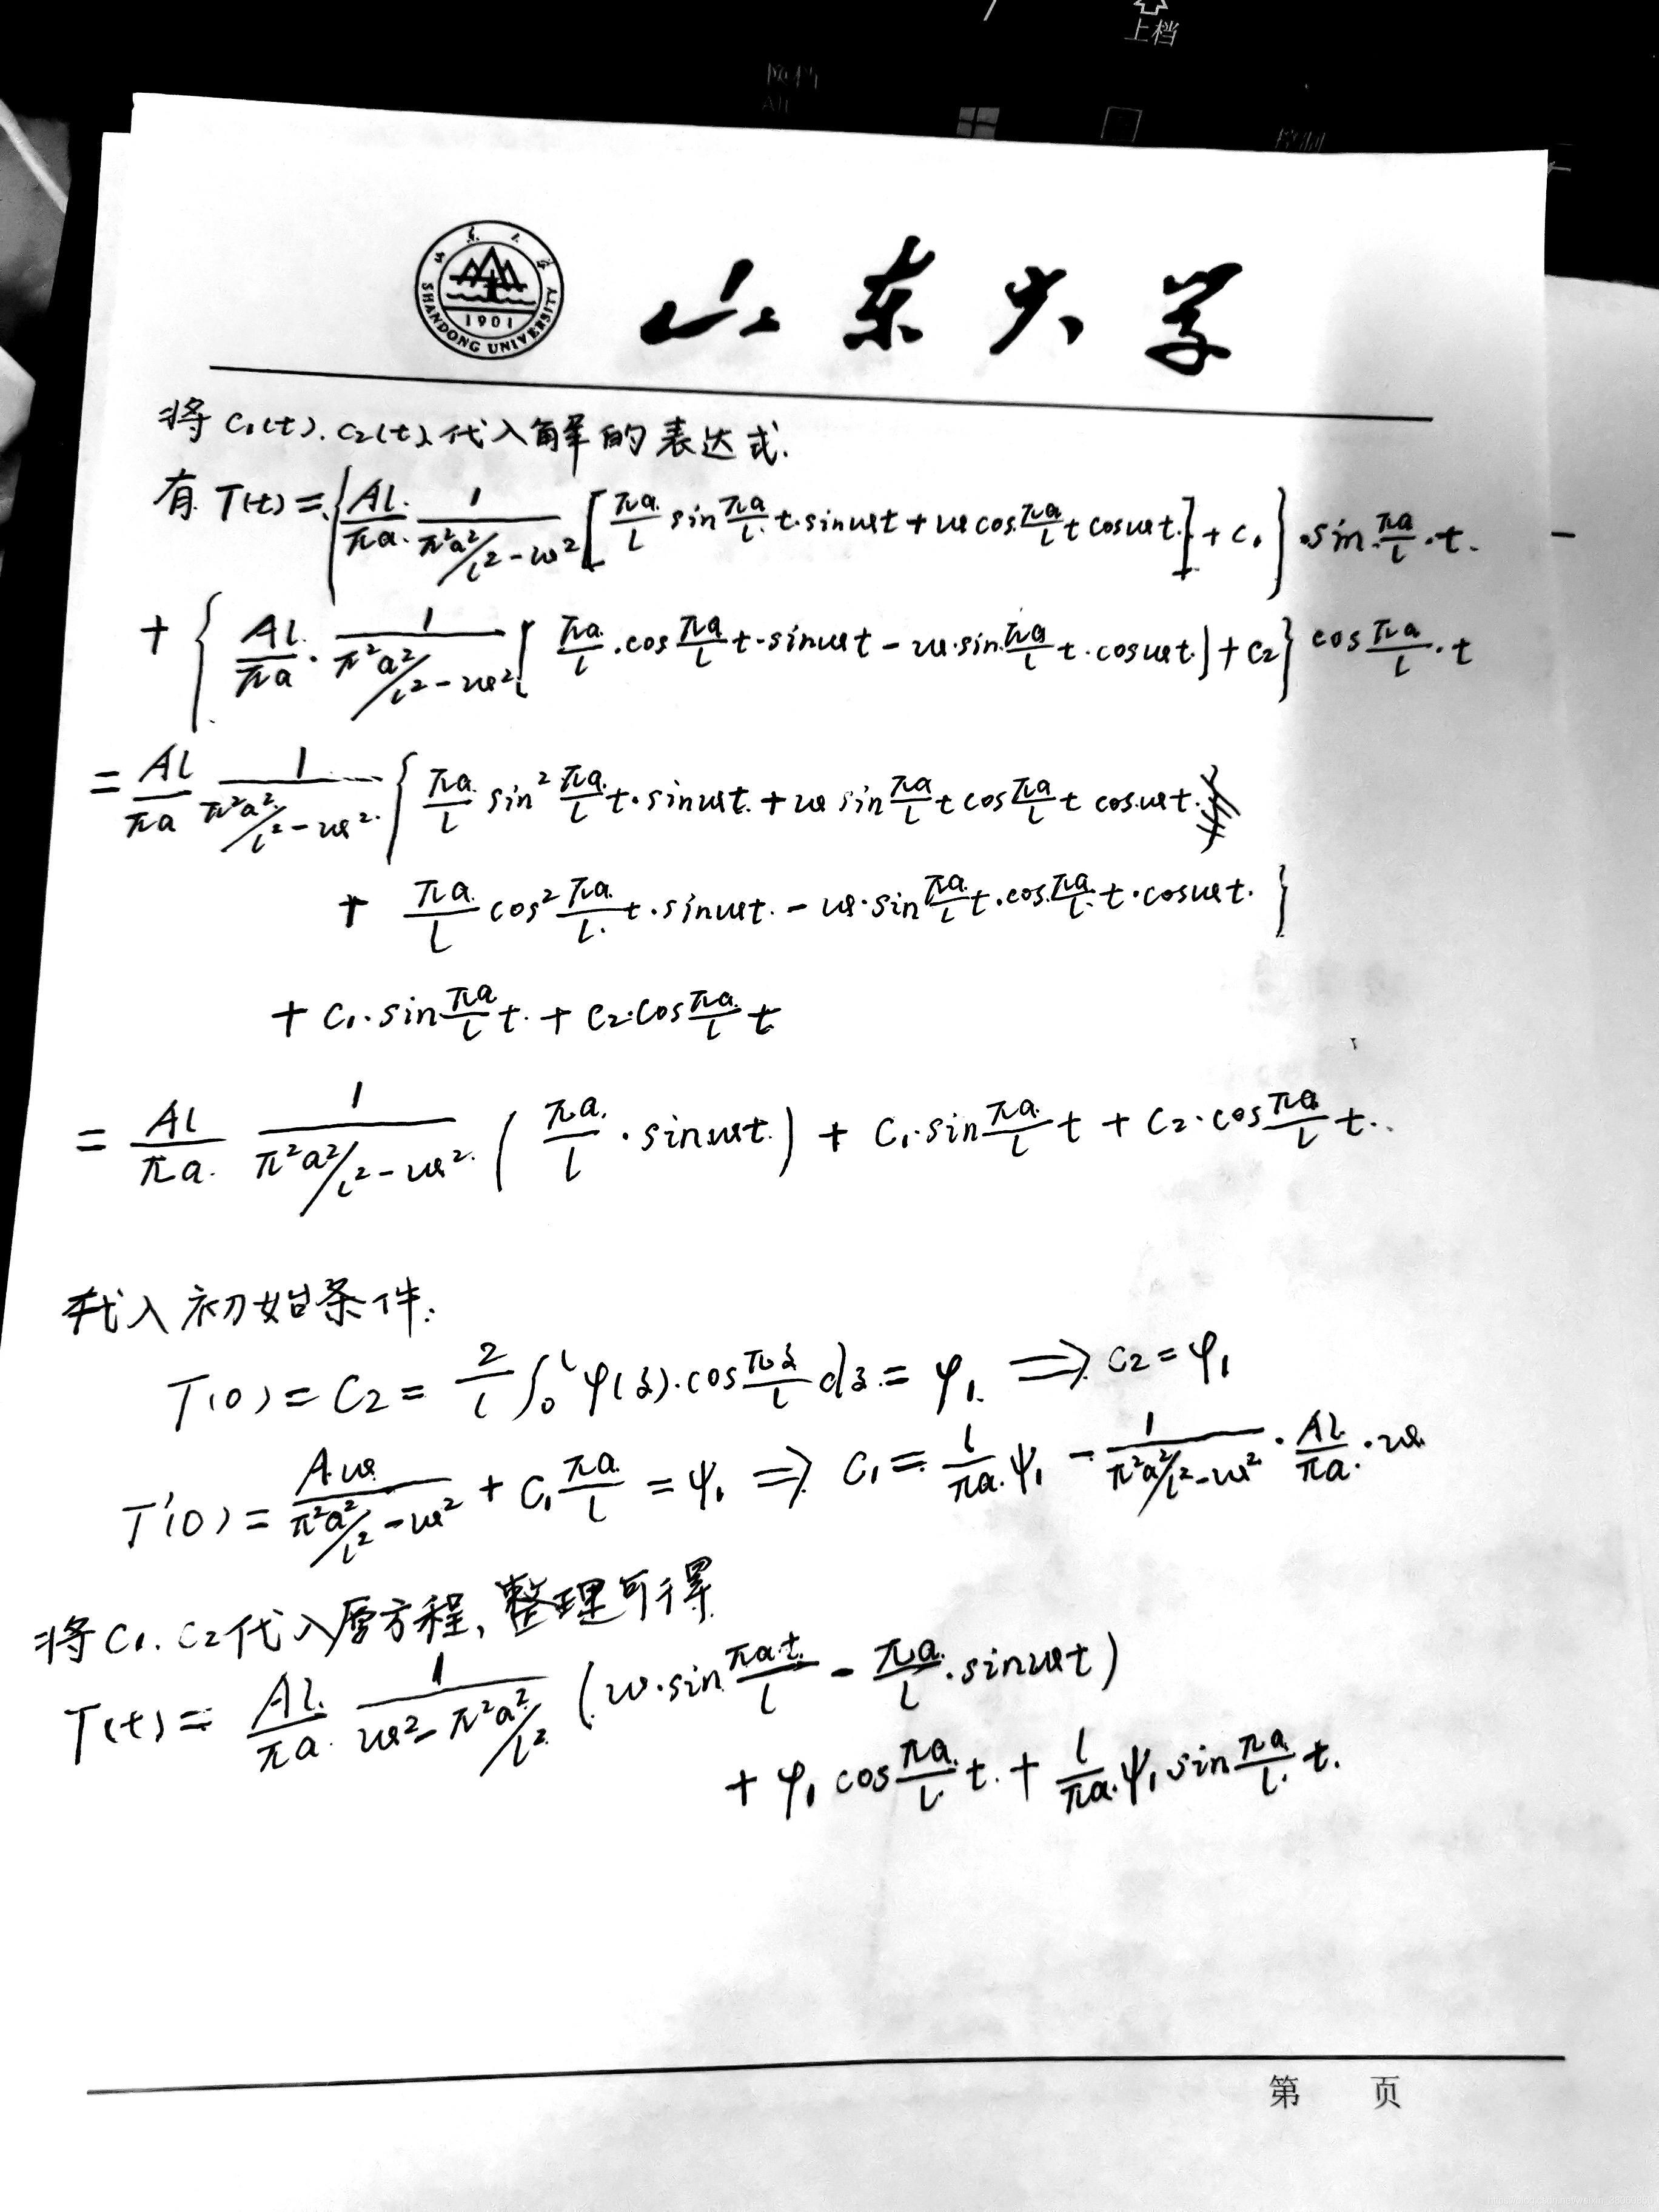 上档
Alt
SHANDONG UNIVERSITY
1901
山东大学
将 C₁(t). C₂(t) 代入解的表达式.
有 T(t) = { Al/πa · 1/(π²a²/l² - ω²) [ πa/l sin πa/l t · sin ωt + ω cos πa/l t cos ωt ] + C₁ } · sin πa/l · t.
+ { Al/πa · 1/(π²a²/l² - ω²) [ πa/l · cos πa/l t · sin ωt - ω · sin πa/l t · cos ωt ] + C₂ } cos πa/l · t
= Al/πa 1/(π²a²/l² - ω²) { πa/l sin² πa/l t · sin ωt + ω sin πa/l t cos πa/l t cos ωt
+ πa/l cos² πa/l t · sin ωt - ω · sin πa/l t · cos πa/l t · cos ωt }
+ C₁ · sin πa/l t + C₂ · cos πa/l t
= Al/πa 1/(π²a²/l² - ω²) ( πa/l · sin ωt ) + C₁ · sin πa/l t + C₂ · cos πa/l t.
代入初始条件:
T(0) = C₂ = 2/l ∫₀ˡ φ(ξ) · cos πξ/l dξ = φ₁ ⟹ C₂ = φ₁
T'(0) = Aω/(π²a²/l² - ω²) + C₁ πa/l = ψ₁ ⟹ C₁ = l/πa ψ₁ - 1/(π²a²/l² - ω²) · Al/πa · ω
将 C₁. C₂ 代入原方程, 整理可得
T(t) = Al/πa 1/(ω² - π²a²/l²) ( ω · sin πat/l - πa/l · sin ωt )
+ φ₁ cos πa/l t + l/πa ψ₁ sin πa/l t.
第 页